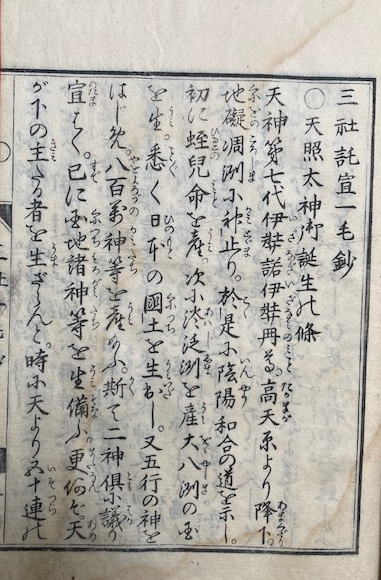 三社託宣一毛鈔
○天照太神御誕生の條
天神第七代伊弉諾伊弉冉尊。高天原より降下。
地礙凋渕に神止り。於是に陰陽和合の道を示し。
初に蛭兒命を産。次に淡淡渕を産大八渕の国
を生。悉く日本の國土を生出し。又五行の神を
はじめ。八百萬神等を産給ふ。斯て二神倶に議り
宣はく。已に国地諸神等を生備ふ更何ぞ天
が下の主たる者を生ざらんと。時に天より五十連の